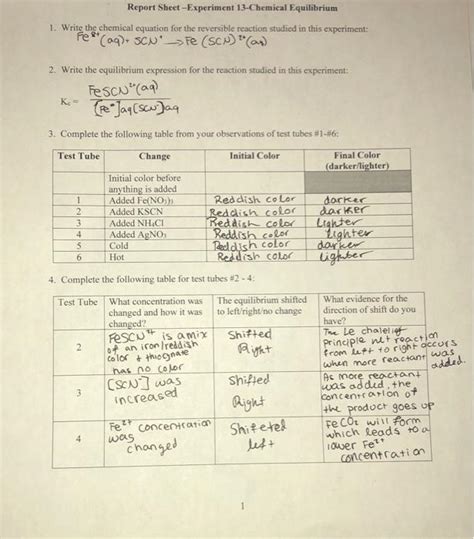 Report Sheet –Experiment 13-Chemical Equilibrium
1. Write the chemical equation for the reversible reaction studied in this experiment:
(aq) + SCN⁻ → Fe(SCN)²⁺(aq)
2. Write the equilibrium expression for the reaction studied in this experiment:
FeSCN²⁺(aq)
Kc =
[Fe]aq[SCN]aq
3. Complete the following table from your observations of test tubes #1-#6:
Test Tube Change Initial Color Final Color
(darker/lighter)
Initial color before
anything is added
1 Added Fe(NO₃)₃ Reddish color darker
2 Added KSCN Reddish color darker
3 Added NH₄Cl Reddish color Lighter
4 Added AgNO₃ Reddish color Lighter
5 Cold Reddish color darker
6 Hot Reddish color lighter
4. Complete the following table for test tubes #2 - 4:
Test Tube What concentration was The equilibrium shifted What evidence for the
changed and how it was to left/right/no change direction of shift do you
changed? have?
2 is a mix Shifted The Le
of an iron/reddish Right principle net reaction
color + from left to right occurs
has no color when more reactant was
added.
3 [SCN⁻] was Shifted As more reactant
increased Right was added, the
concentration of
the product goes up
4 Fe²⁺ concentration left FeCO₂ will form
was which leads to a
changed lower Fe²⁺
concentration
1